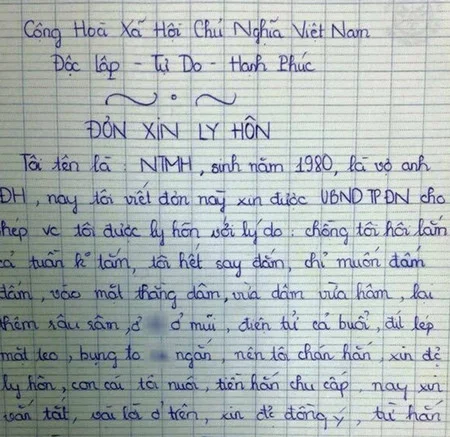 Cộng Hoà Xã Hội Chủ Nghĩa Việt Nam
Độc Lập - Tự Do - Hạnh Phúc
ĐƠN XIN LY HÔN
Tôi tên là : NTMH , sinh năm 1980, là vợ anh
ĐH , nay tôi viết đơn này xin được UBND TPĐN cho
hép vc tôi được ly hôn với lý do : chồng tôi hôi lắm
cả tuần k tắm, tôi hết say đắm, chỉ muốn đấm
đấm , vào mặt thằng dâm, vừa dâm vừa hâm, lại
thêm sâu sâm, ở ở mũi , điện tử cả buổi, đít lép
mặt teo , bụng to ngắn , nên tôi chán hắn , xin đề
ly hôn , con cái tôi nuôi , tiền hắn chu cấp , nay xin
vắn tắt , vài lời ở trên , xin đề đồng ý , từ hắn